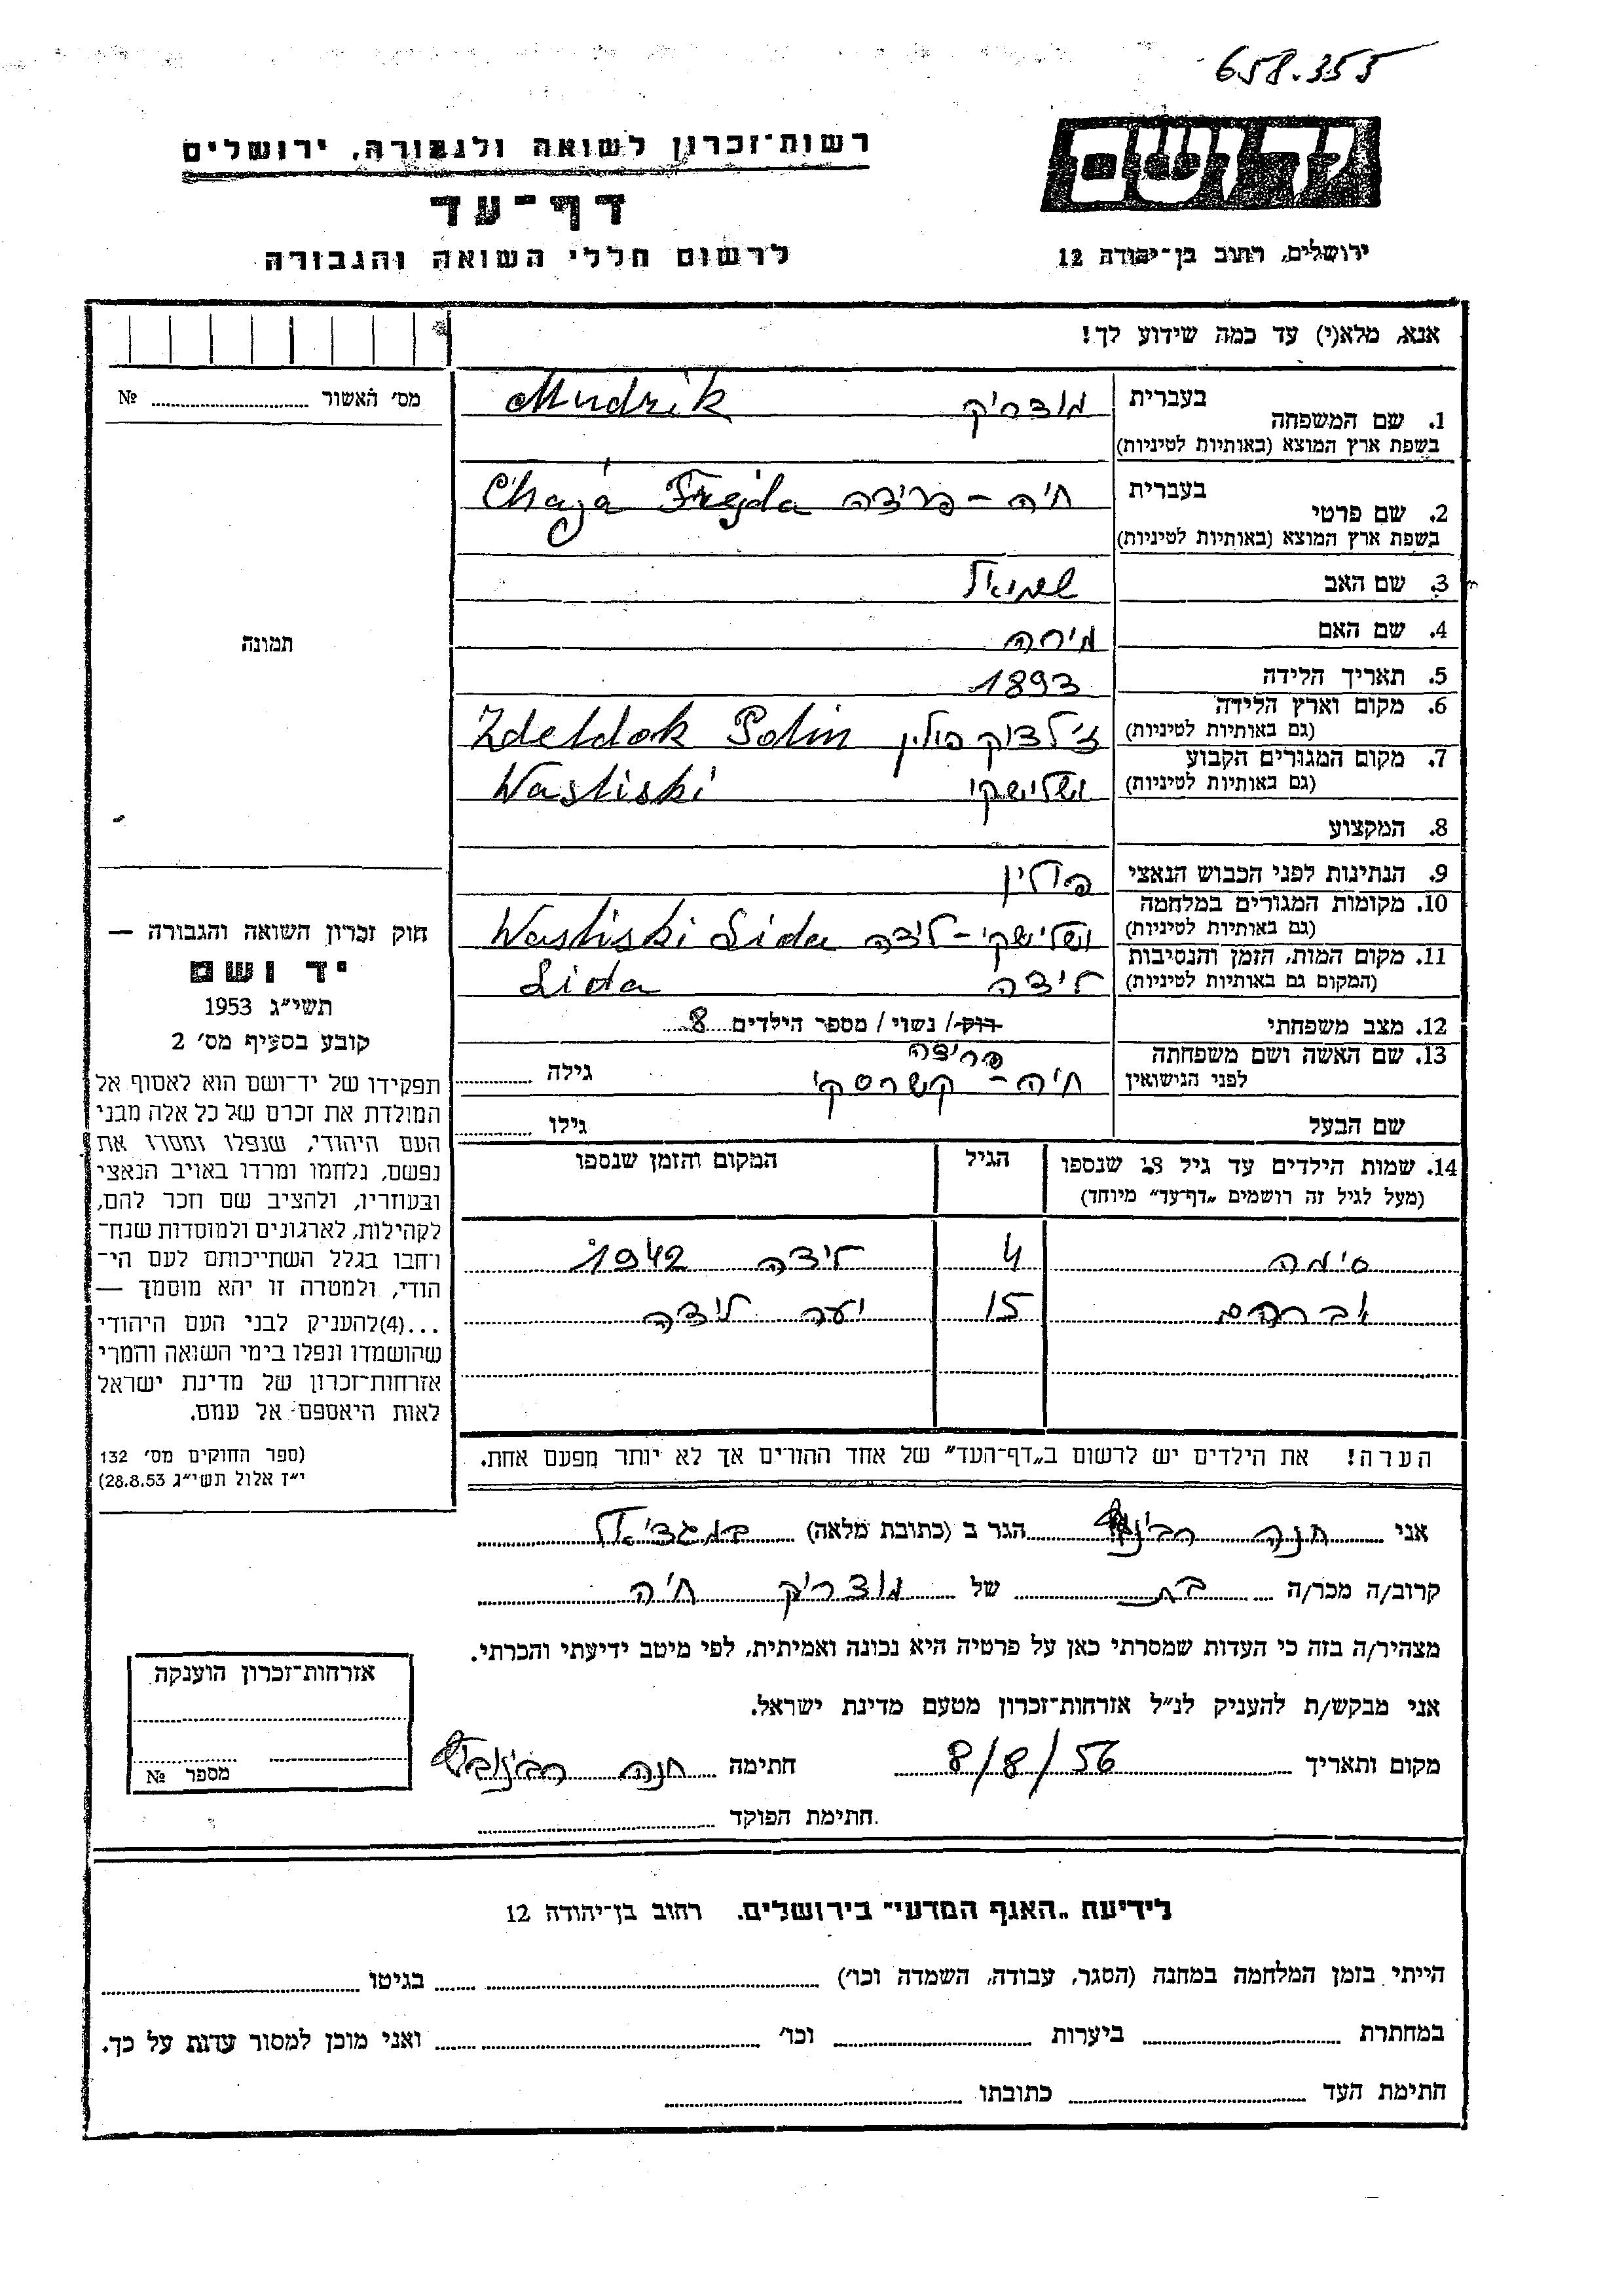 658.355
יד ושם
רשות־זכרון לשואה ולגבורה, ירושלים
דף־עד
לרשום חללי השואה והגבורה
ירושלים, רחוב בן־יהודה 12
אנא, מלא(י) עד כמה שידוע לך!
מס' האשור № 
1. שם המשפחה בעברית מודריק Mudrik
בשפת ארץ המוצא (באותיות לטיניות)
2. שם פרטי בעברית חיה - פריידה Chaja Frejda
בשפת ארץ המוצא (באותיות לטיניות)
3. שם האב שמואל
4. שם האם מירה
תמונה
5. תאריך הלידה 1893
6. מקום וארץ הלידה ז'לדוק פולין Zdeldok Polin
(גם באותיות לטיניות)
7. מקום המגורים הקבוע ושלישקי Wasliski
(גם באותיות לטיניות)
8. המקצוע
9. הנתינות לפני הכבוש הנאצי פולין
10. מקומות המגורים במלחמה ושלישקי - לידה Wasliski Lida
(גם באותיות לטיניות)
11. מקום המות, הזמן והנסיבות לידה Lida
(המקום גם באותיות לטיניות)
12. מצב משפחתי רוק/ נשוי/ מספר הילדים 8
13. שם האשה ושם משפחתה פרידה
לפני הנישואין חיה - קשרסקי גילה
שם הבעל גילו
14. שמות הילדים עד גיל 18 שנספו הגיל המקום והזמן שנספו
(מעל לגיל זה רושמים „דף־עד" מיוחד)
סימה 4 לידה 1942
אברהם 15 יער לידה
הערה! את הילדים יש לרשום ב„דף־העד" של אחד ההורים אך לא יותר מפעם אחת.
חוק זכרון השואה והגבורה —
יד ושם
תשי"ג 1953
קובע בסעיף מס' 2
תפקידו של יד־ושם הוא לאסוף אל
המולדת את זכרם של כל אלה מבני
העם היהודי, שנפלו ומסרו את
נפשם, נלחמו ומרדו באויב הנאצי
ובעוזריו, ולהציב שם וזכר להם,
לקהילות, לארגונים ולמוסדות שנח־
רחבו בגלל השתייכותם לעם הי־
הודי, ולמטרה זו יהא מוסמך —
...(4)להעניק לבני העם היהודי
שהושמדו ונפלו בימי השואה והמרי
אזרחות־זכרון של מדינת ישראל
לאות היאספם אל עמם.
(ספר החוקים מס' 132
י"ז אלול תשי"ג 28.8.53)
אני חנה הגר ב (כתובת מלאה)
קרוב/ה מכר/ה בת של מודריק חיה
מצהיר/ה בזה כי העדות שמסרתי כאן על פרטיה היא נכונה ואמיתית, לפי מיטב ידיעתי והכרתי.
אני מבקש/ת להעניק לנ"ל אזרחות־זכרון מטעם מדינת ישראל.
מקום ותאריך 8/8/56 חתימה חנה
חתימת הפוקד
אזרחות־זכרון הוענקה
מספר №
לידיעת „האגף המדעי" בירושלים. רחוב בן־יהודה 12
הייתי בזמן המלחמה במחנה (הסגר, עבודה, השמדה וכו') בגיטו
במחתרת ביערות וכו' ואני מוכן למסור עדות על כך.
חתימת העד כתובתו